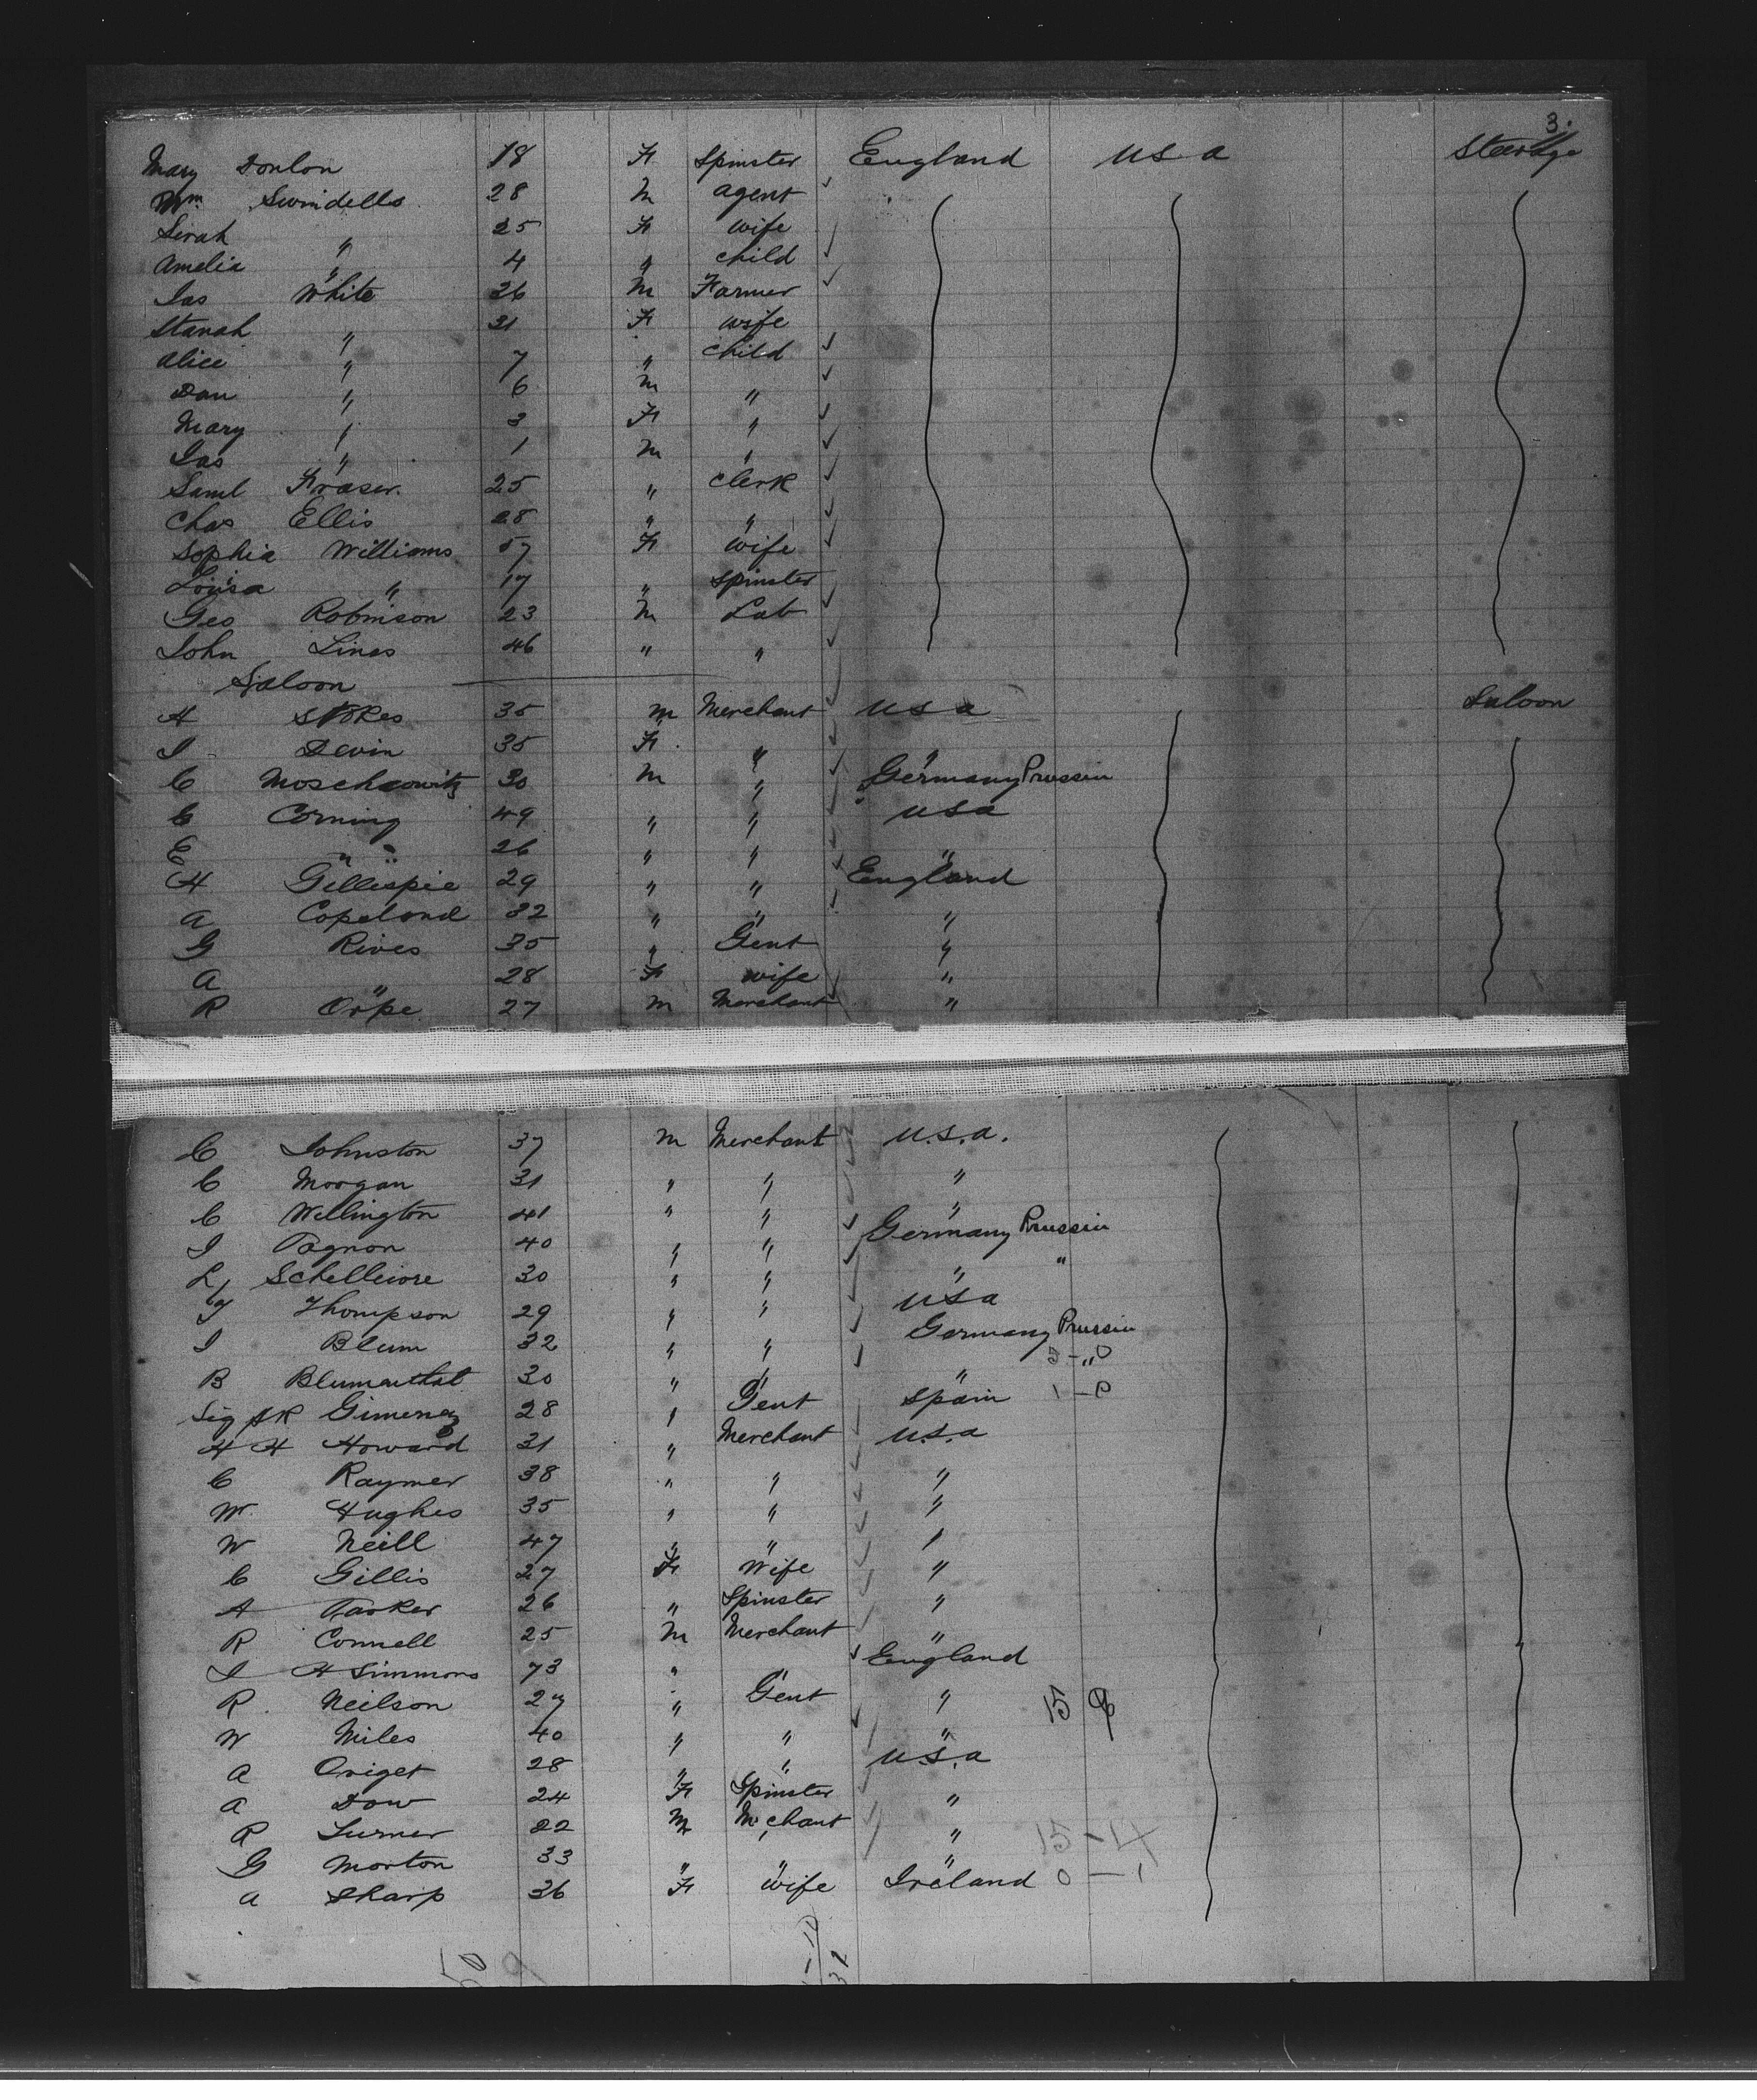 3.
Mary Donlon 18 F Spinster England U S A Steerage
Wm Swindells 28 M agent
Sarah " 25 F wife
Amelia " 4 " child
Jas White 26 M Farmer
Hanah " 21 F wife
Alice " 7 " child
Dan " 6 M "
Mary " 3 F "
Jas " 1 M "
Saml Fraser. 25 " clerk
Chas Ellis 28 " "
Sophia Williams 57 F wife
Louisa " 17 " spinster
Geo Robinson 23 M Lab
John Lines 46 " "
Saloon
H Stokes 35 M Merchant U S a Saloon
J Devin 35 F " "
C Moschcowitz 30 M " Germany Prussia
C Corning 49 " " U S a
E " 26 " " "
H Gillespie 29 " " England
A Copeland 32 " " "
G Rives 35 " Gent "
A " 28 F wife "
R Orpe 27 M Merchant "
C Johnston 37 M Merchant U.S.a.
C Morgan 31 " " "
C Wellington 41 " " "
J Pagnon 40 " " Germany Prussia
L 30 " " " "
T Thompson 29 " " U S a
J Blum 32 " " Germany Prussia
B Blumenthal 30 " " " "
Sig Gimenez 28 " Gent Spain
H H Howard 31 " Merchant U.S.a
C Raymer 38 " " "
W. Hughes 35 " " "
W Neill 47 " " "
C Gillis 27 F Wife "
A 26 " Spinster "
R Connell 25 M Merchant "
J H Simmons 73 " " England
R Neilson 27 " Gent " 15
W Miles 40 " " "
A 28 " " U.S.a
A Dow 24 F Spinster "
R Turner 22 M Mchant "
G Morton 33 " " "
A Sharp 36 F wife Ireland